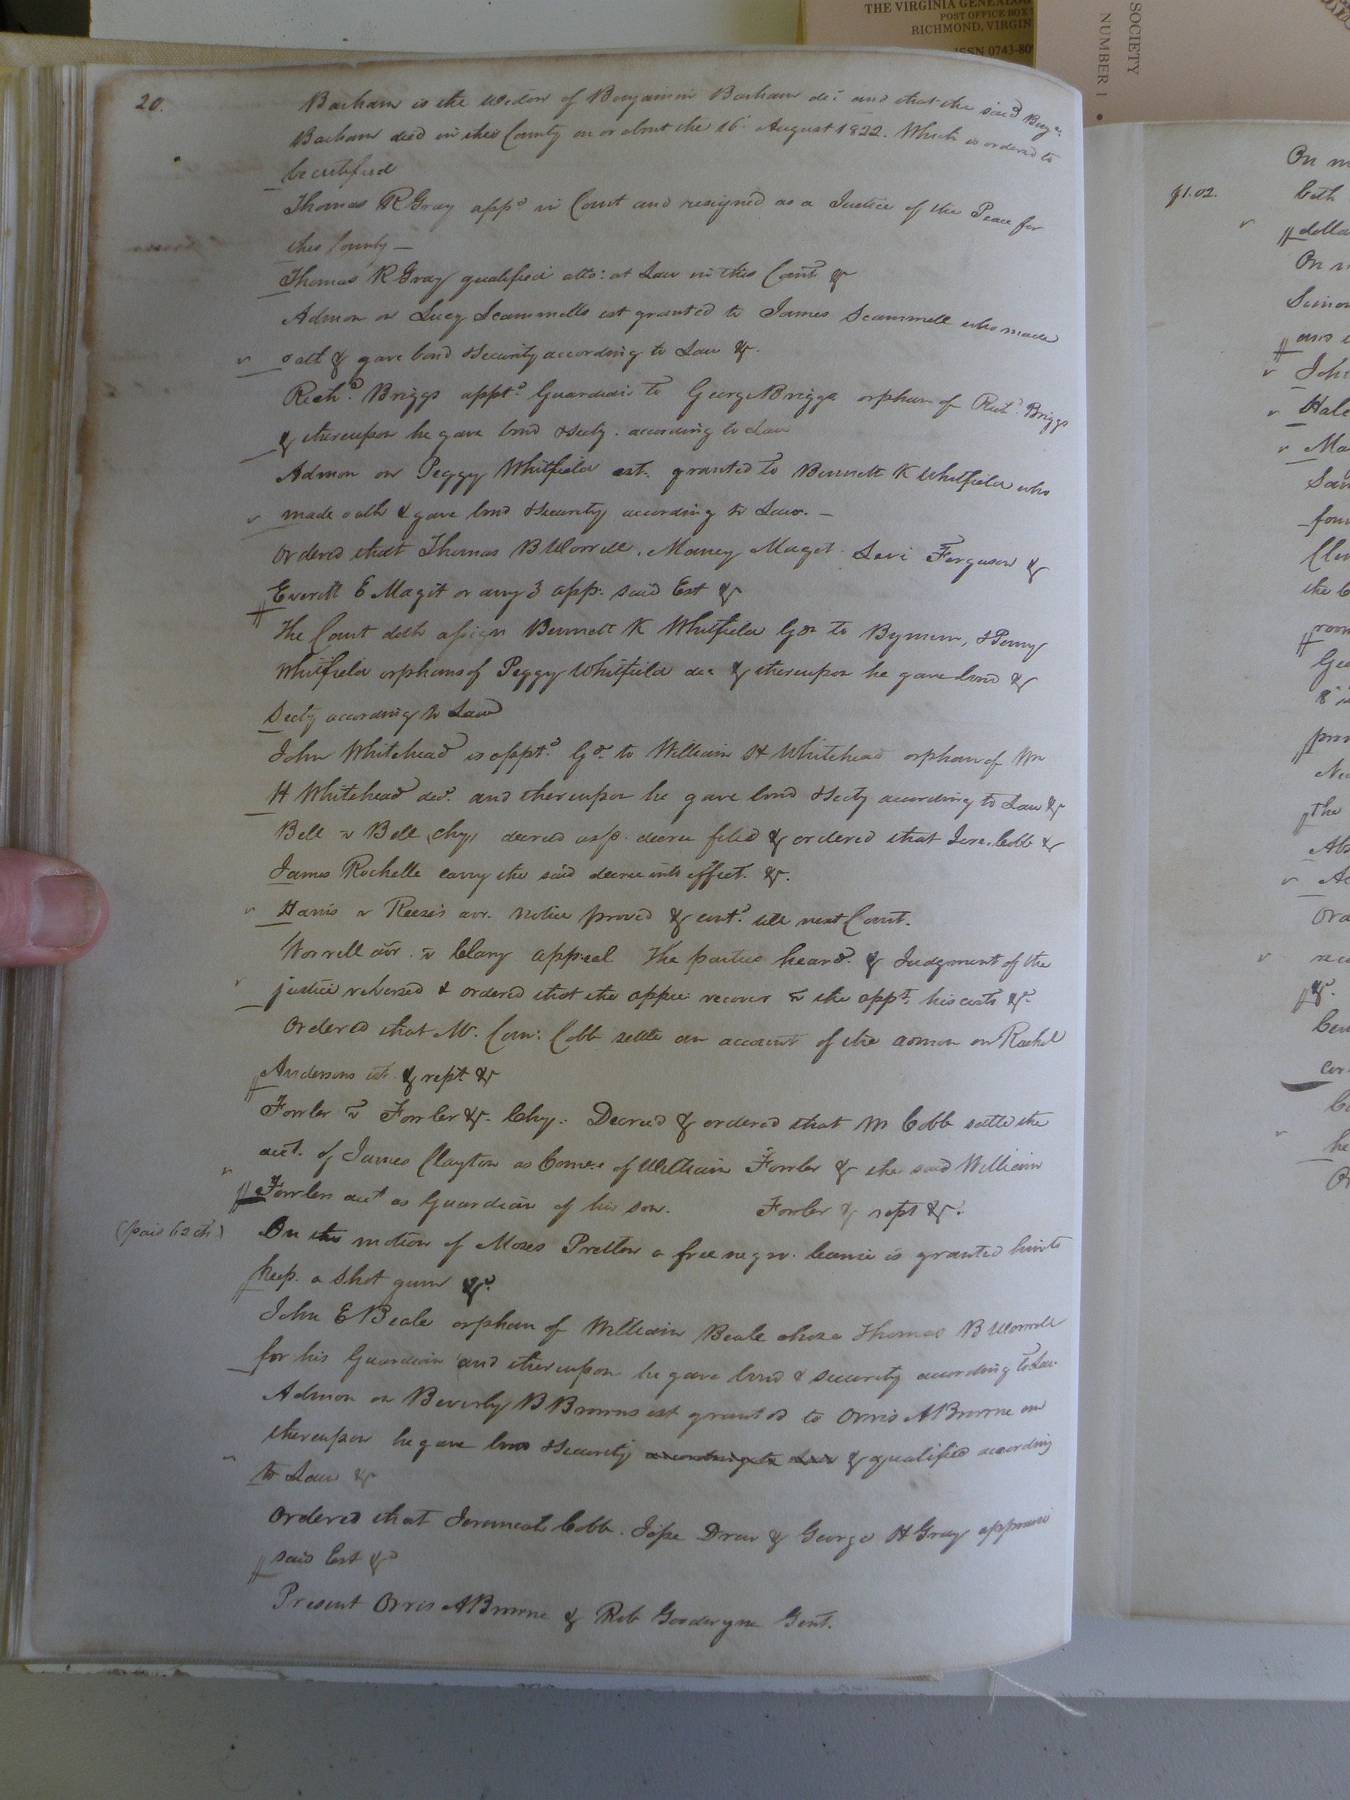 THE VIRGINIA GENEALOG
POST OFFICE BOX
RICHMOND, VIRGIN
ISSN 0743-80
SOCIETY
NUMBER 1
20.
Barham is the widow of Benjamin Barham decd and that the said Benj.
Barham died in this County on or about the 16th August 1832. Which is ordered to
be certified
Thomas R Gray appd in Court and resigned as a Justice of the Peace for
this County —
Thomas R Gray qualified atto: at Law in this Court &
Admon on Lucy Scammells est granted to James Scammell who made
oath & gave bond & Security according to Law &c.
Richd. Briggs apptd. Guardian to George Briggs orphan of Richd. Briggs
& thereupon he gave bond & Secty. according to Law
Admon on Peggy Whitfield est. granted to Bennett K Whitfield who
made oath & gave bond & Security according to Law. —
Ordered that Thomas B Worrell, Maney Magit Levi Ferguson &
Everitt E Magit or any 3 app. said Est &c
The Court doth assign Bennett K Whitfield Gdn to & Penny
Whitfield orphans of Peggy Whitfield dec & thereupon he gave bond &
Secty according to Law
John Whitehead is apptd. Gdn. to William H Whitehead orphan of Wm
H Whitehead decd. and thereupon he gave bond & Secty according to Law &c
Bell v Bell chy, decreed as p. decree filed & ordered that Jere. Cobb &
James Rochelle carry the said decree into effect. &c.
Harris v Reese's notice proved & cont. till next Court.
Worrell v Clary appeal The parties heard. & Judgment of the
justice reversed & ordered that the appee recover v the appt. his costs &c
Ordered that Mr. Com: Cobb settle an account of the admon on Rachel
Andersons est. & rept &c
Fowler v Fowler &c. Chy. Decreed & ordered that Mr Cobb settle the
acct. of James Clayton as Comee of William Fowler & the said William
Fowlers acct as Guardian of his son. Fowler & rept &c.
(paid 62 cts.)
On the motion of Moses a free negro. licence is granted him to
keep a shot gun &c.
John E Beale orphan of William Beale chose Thomas B Worrell
for his Guardian and thereupon he gave bond & security according to Law
Admon on Beverly B Browns est granted to Orris A Browne on
thereupon he gave bond & Security according to Law & qualified according
to Law &c
Ordered that Jeremiah Cobb. Drew & George H Gray appraise
said Est &c
Present Orris A Browne & Rob Goodwyn Gent.
$1.02.
On m
both
dolla
On m
Simon
John
Hale
Ma
four
the
room
Geo
the